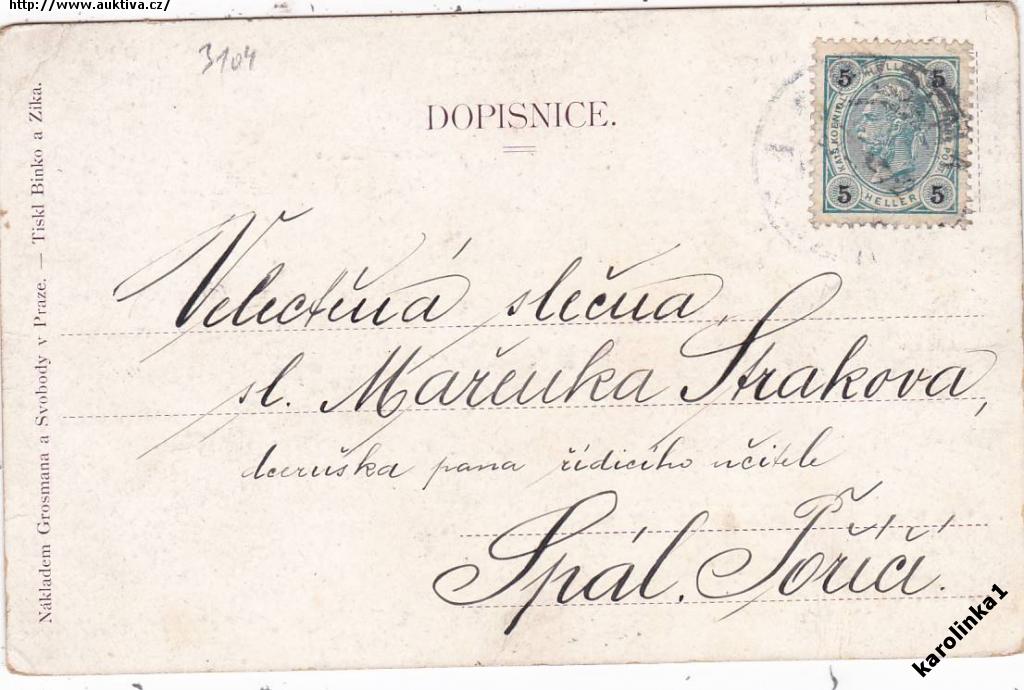 http://www.auktiva.cz/
3104
DOPISNICE.
5 HELLER 5
KAIS.KOENIGL.
5 HELLER 5
Velectěná slečna
sl. Mařenka Straková,
dceruška pana řídicího učitele
Spál. Poříčí.
Nákladem Grosmana a Svobody v Praze. — Tiskl Binko a Zika.
karolinka1